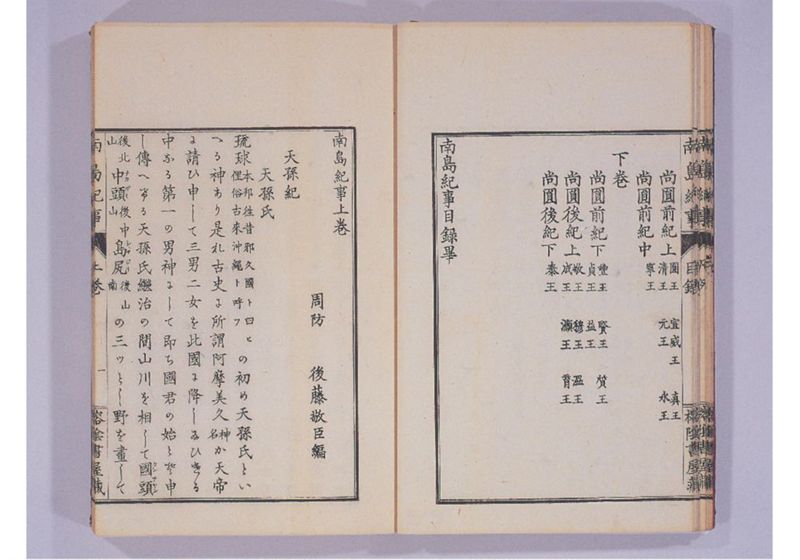 南島紀事 目録 榕陰書屋藏
尚圓前紀上 圓王 宣威王 真王 清王 元王 永王
尚圓前紀中 寧王
下巻
尚圓前紀下 豐王 賢王 質王 貞王 益王
尚圓後紀上 敬王 穆王 溫王 成王 灝王 育王
尚圓後紀下 泰王
南島紀事目録畢
南島紀事上巻
周防 後藤敬臣編
天孫紀
天孫氏
琉球本邦往昔邪久國ト曰ヒ俚俗古來沖繩ト呼フの初め天孫氏とい
へる神あり是れ古史に所謂阿摩美久神名か天帝
に請ひ申して三男二女を此國に降し給ひける
中なる第一の男神にして即ち國君の始とぞ申
し傳へける天孫氏繼治の間山川を相して國頭
後北山中頭後中山島尻後南山の三ツとし野を畫して
南島紀事 上巻 一 榕陰書屋藏